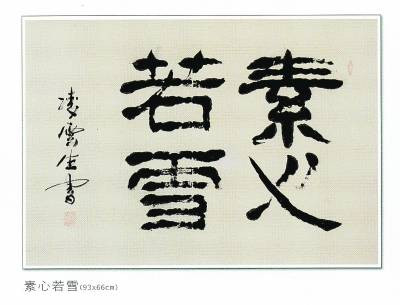 素心
若雪
凌雲生書
素心若雪(93x66cm)